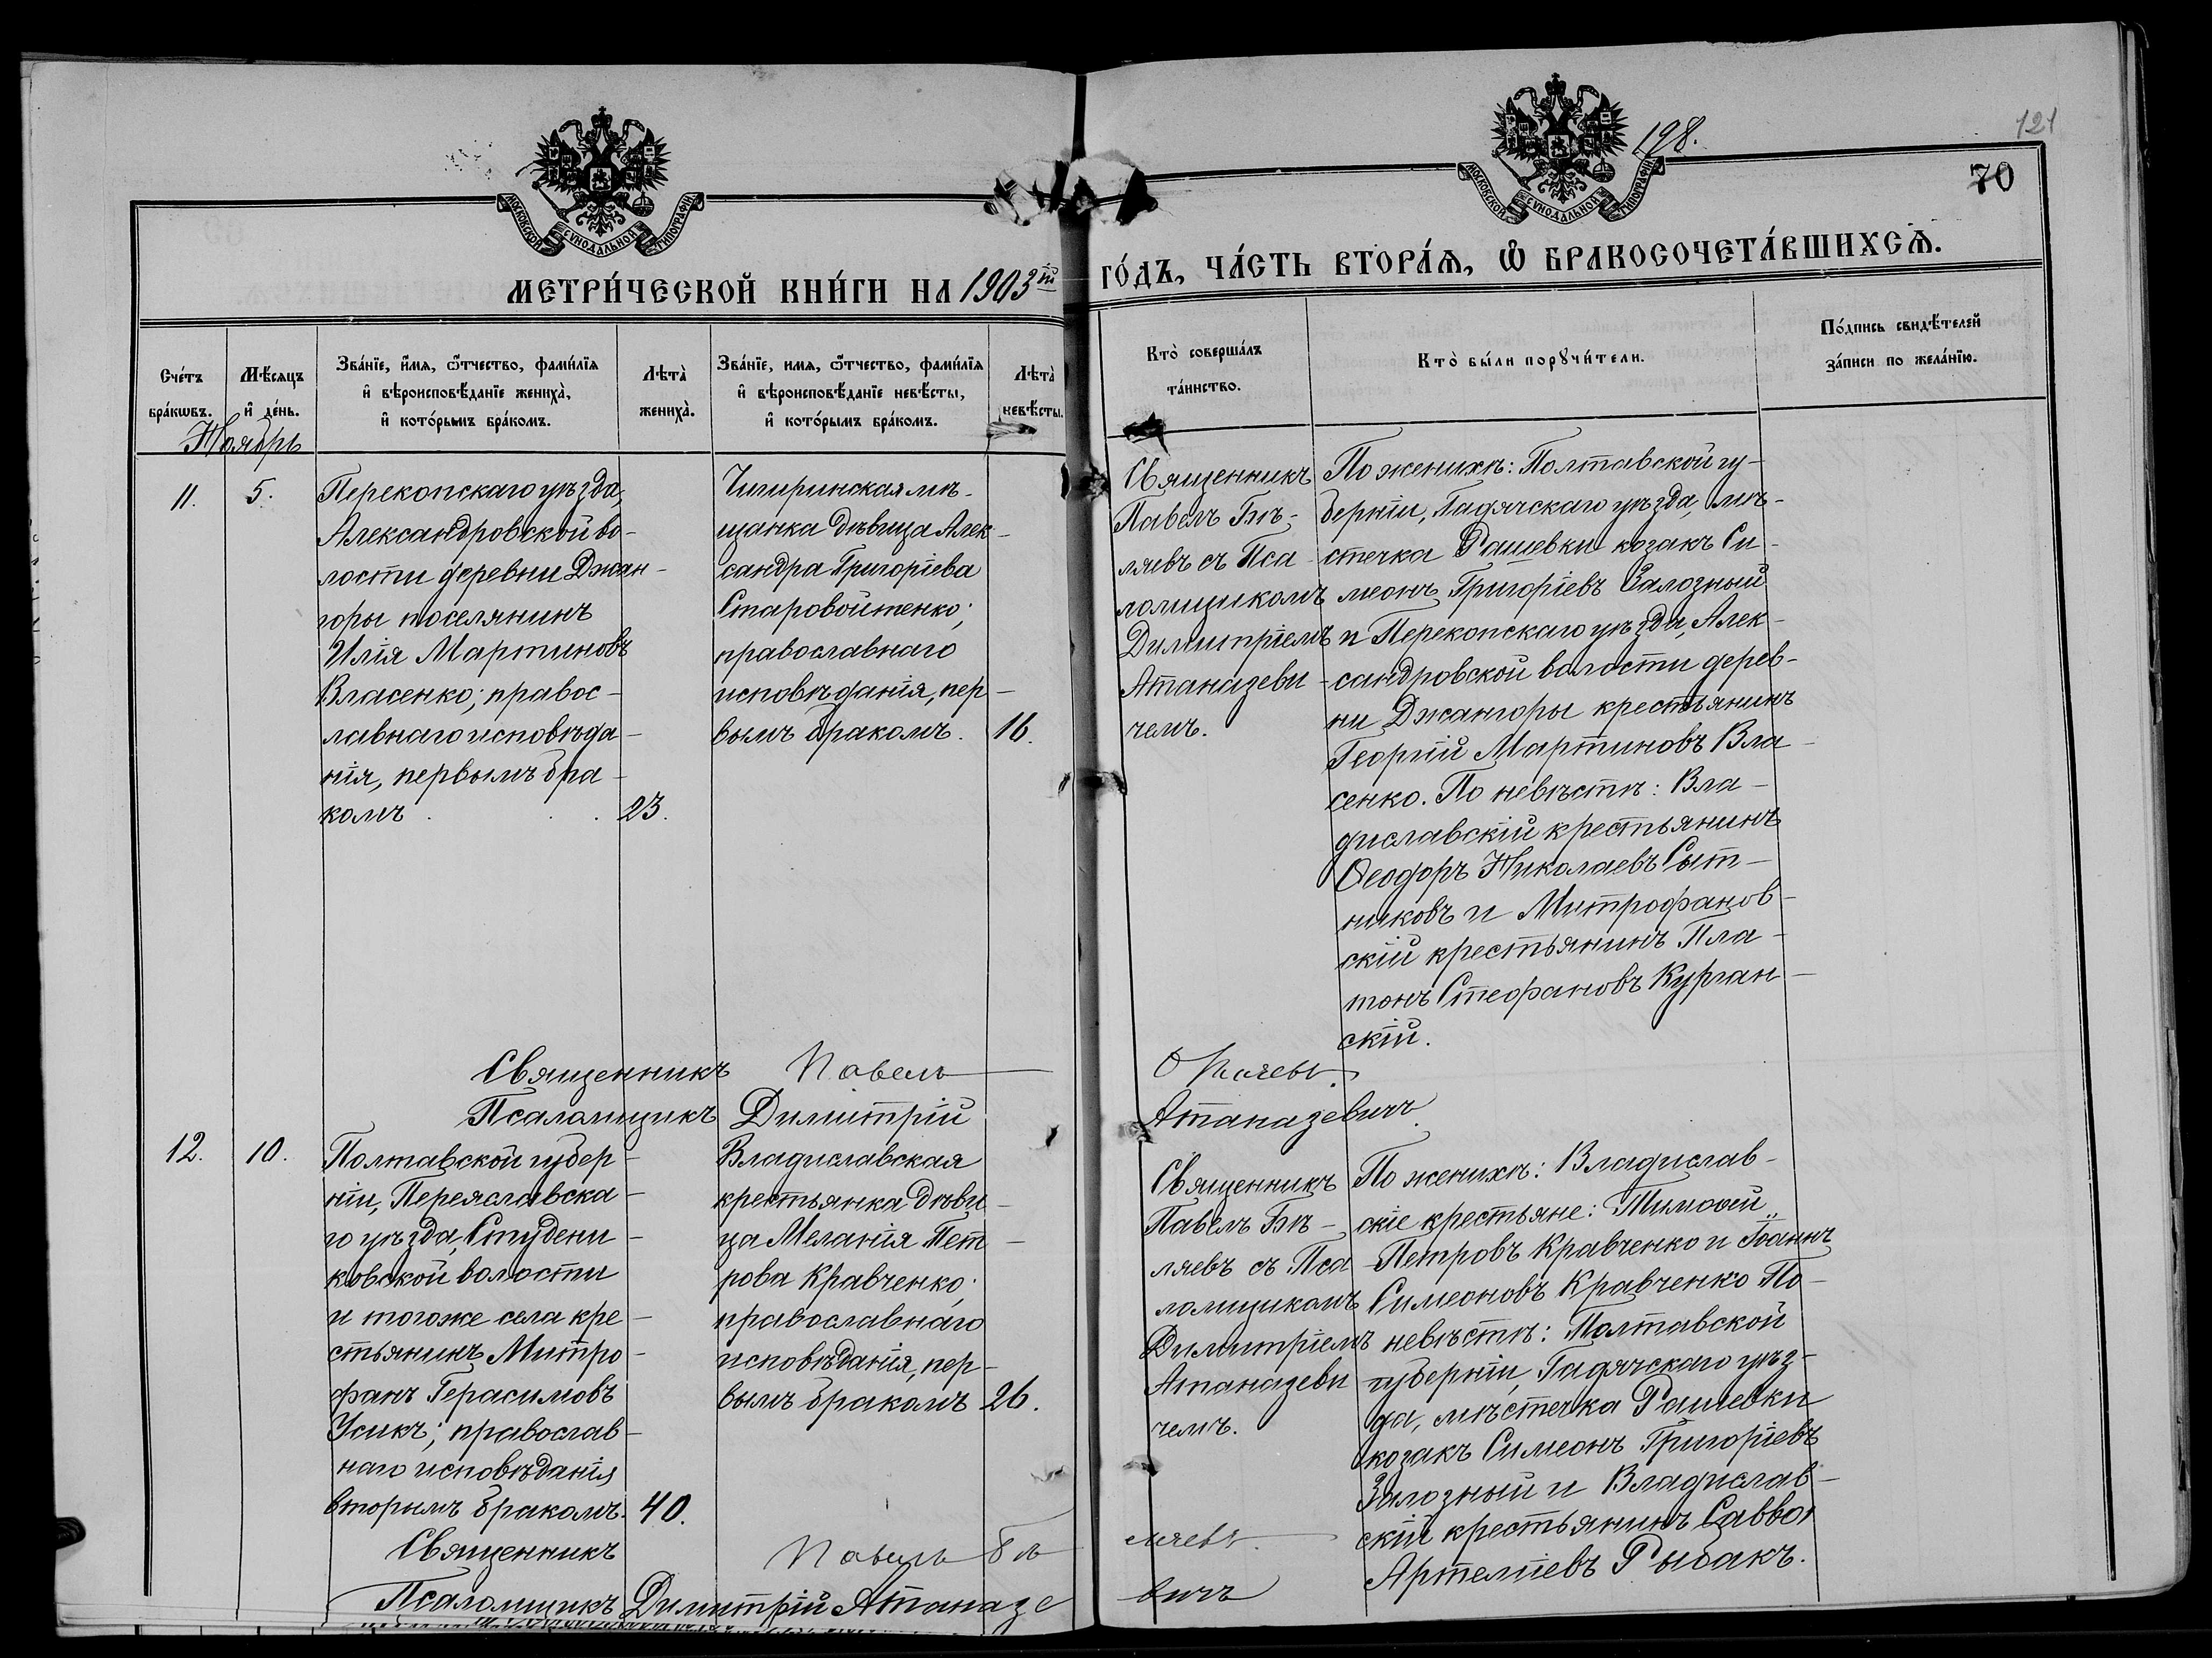 198.
121
70
МОСКОВСКОЙ СѴНОДАЛЬНОЙ ТИПОГРАФІИ
МОСКОВСКОЙ СѴНОДАЛЬНОЙ ТИПОГРАФІИ
МЕТРИ́ЧЕСКОЙ КНИ́ГИ НА 1903й ГО́ДЪ, ЧА́СТЬ ВТОРА́Я, Ѽ БРАКОСОЧЕТА́ВШИХСѦ.
Сче́тъ
бра́кѡвъ.
Мѣ́сяцъ
и҆ де́нь.
Зва́нїе, и҆́мя, ѻ҆́тчество, фами́лїя
и҆ вѣроисповѣ́данїе жениха̀,
и҆ кото́рымъ бра́комъ.
Лѣта̀
жениха̀.
Зва́нїе, имя, ѻ҆́тчество, фами́лїя
и҆ вѣроисповѣ́данїе невѣ́сты,
и҆ кото́рымъ бра́комъ.
Лѣта̀
невѣ́сты.
Кто̀ соверша́лъ
та́инство.
Кто̀ бы́ли порꙋчи́тели.
По́дпись свидѣ́телей
за́писи по жела́нїю.
Ноябрь
11.
5.
Перекопскаго уѣзда,
Александровской во-
лости деревни Джан-
горы поселянинъ
Илія Мартиновъ
Власенко; правос-
лавнаго исповѣда-
нія, первымъ бра-
комъ . . 23.
Чигиринская мѣ-
щанка дѣвица Алек-
сандра Григоріева
Старовойтенко;
православнаго
исповѣданія, пер-
вымъ бракомъ. 16.
Священникъ
Павелъ Бѣ-
ляевъ съ Пса-
ломщикомъ
Димитріемъ
Атаназеви-
чемъ.
По женихѣ: Полтавской гу-
берніи, Гадячскаго уѣзда, мѣ-
стечка Рашевки козакъ Си-
меонъ Григоріевъ Залозный
и Перекопскаго уѣзда, Алек-
сандровской волости дерев-
ни Джангоры крестьянинъ
Георгій Мартиновъ Вла-
сенко. По невѣстѣ: Вла-
диславскій крестьянинъ
Ѳеодоръ Николаевъ Сыт-
никовъ и Митрофанов-
скій крестьянинъ Пла-
тонъ Стефановъ Курган-
скій.
Священникъ Павелъ
Псаломщикъ Димитрій Атаназевичъ.
12.
10.
Полтавской губер-
ніи, Переяславска-
го уѣзда, Студени-
ковской волости
и тогоже села кре-
стьянинъ Митро-
фанъ Герасимовъ
Усикъ; православ-
наго исповѣданія
вторымъ бракомъ. 40.
Владиславская
крестьянка дѣви-
ца Меланія Пет-
рова Кравченко;
православнаго
исповѣданія, пер-
вымъ бракомъ 26.
Священникъ
Павелъ Бѣ-
ляевъ съ Пса-
ломщикомъ
Димитріемъ
Атаназеви
чемъ.
По женихѣ: Владислав-
скіе крестьяне: Тимоѳей
Петровъ Кравченко и Іоаннъ
Симеоновъ Кравченко По-
невѣстѣ: Полтавской
губерніи, Гадячскаго уѣз-
да, мѣстечка Рашевки
козакъ Симеонъ Григоріевъ
Залозный и Владислав-
скій крестьянинъ Савва
Артеміевъ Рыбакъ.
Священникъ Павелъ Бѣляевъ.
Псаломщикъ Димитрій Атаназевичъ